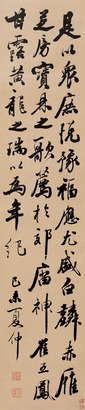 是以眾庶悅豫福應尤盛白麟赤雁
芝房寶鼎之歌薦於郊廟神雀五鳳
甘露黃龍之瑞以為年紀
己未夏仲